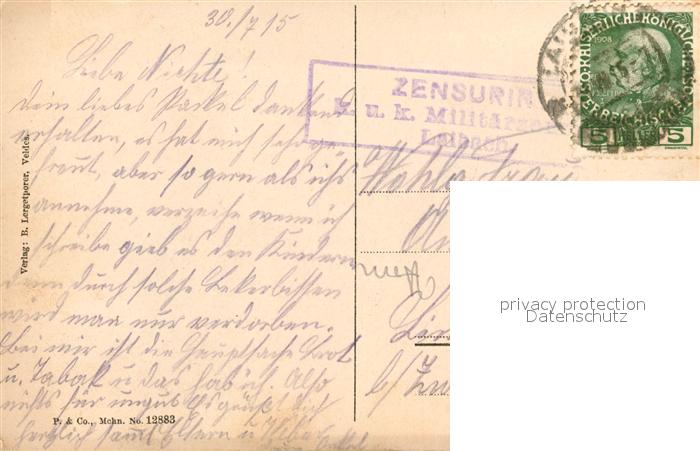 30./7 15
Liebe Nichte!
Dein liebes Packel dankend
erhalten, es hat mich sehr ge-
freut, aber so gern als ichs
annehme, verzeihe wenn ich
schreibe gieb es den Kindern
denn durch solche Lekerbissen
wird man nur verdorben.
Bei mir ist die Hauptsache Brot
u. Tabak u das hab ich. Also
nichts für ungut. Es grüßt Dich
herzlich samt Eltern u
Onkel
Verlag: R. Lergetporer, Veldes.
P. & Co., Mchn. No. 12883
ZENSURI
k. u. k. Militärzen
Laibach
1908
5 5
privacy protection
Datenschutz